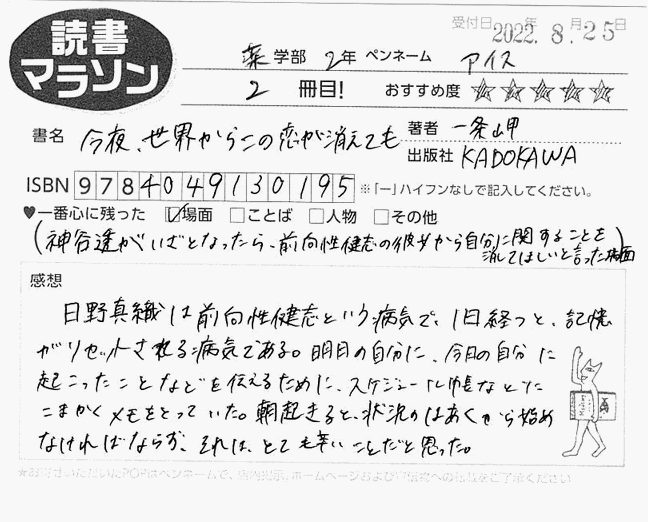 読書
マラソン
受付日 2022年 8月25日
薬 学部 2年 ペンネーム アイス
2 冊目! おすすめ度 ★★★★★
書名 今夜、世界からこの恋が消えても
著者 一条岬
出版社 KADOKAWA
ISBN 9784049130195 ※「ー」ハイフンなしで記入してください。
♥一番心に残った ☑場面 □ことば □人物 □その他
(神谷透がいざとなったら、前向性健忘の彼女から自分に関することを
消してほしいと言った場面)
感想
日野真織は前向性健忘という病気で、1日経つと、記憶
がリセットされる病気である。明日の自分に、今日の自分に
起こったことなどを伝えるために、スケジュール帳などに
こまかくメモをとっていた。朝起きると、状況のはあくから始め
なければならず、それは、とても辛いことだと思った。
※お寄せいただいたPOPはペンネームで、店内掲示、ホームページおよび